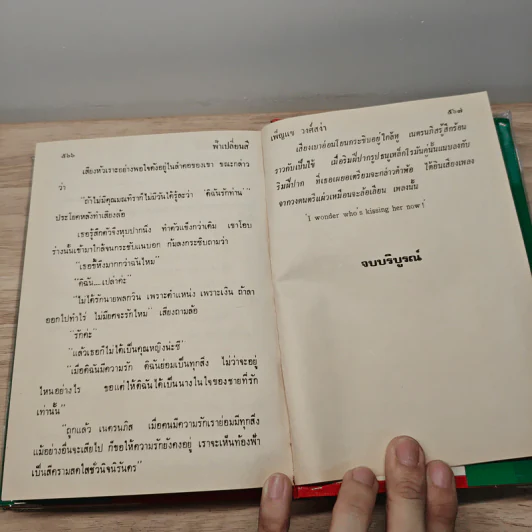 ๕๖๖ ฟ้าเปลี่ยนสี
เสียงหัวเราะอย่างพอใจดังอยู่ในลำคอของเขา ขณะกล่าว
ว่า
"ถ้าไม่มีคุณมณทิราก็ไม่มีวันได้รู้ละว่า 'ดิฉันรักท่าน'"
ประโยคหลังทำเสียงล้อ
เธอรู้สึกตัวจึงหุบปากนิ่ง ทำตัวแข็งกว่าเดิม เขาโอบ
ร่างนั้นเข้ามาใกล้จนกระชับแนบอก ก้มลงกระซิบถามว่า
"เธอขี้หึงมากกว่าฉันไหม"
"ดิฉัน....เปล่าค่ะ"
"ไม่ได้รักนายพลกวิน เพราะตำแหน่ง เพราะเงิน ถ้าลา
ออกไปทำไร่ ไม่มียศจะรักไหม" เสียงถามล้อ
"รักค่ะ"
"แล้วเธอก็ไม่ได้เป็นคุณหญิงน่ะซี"
"เมื่อดิฉันมีความรัก ดิฉันย่อมเป็นทุกสิ่ง ไม่ว่าจะอยู่
ไหนอย่างไร ขอแต่ให้ดิฉันได้เป็นนางในใจของชายที่รัก
เท่านั้น"
"ถูกแล้ว เนตรนภิส เมื่อคนมีความรักเราย่อมมีทุกสิ่ง
แม้อย่างอื่นจะเสียไป ก็ขอให้ความรักยังคงอยู่ เราจะเห็นท้องฟ้า
เป็นสีครามสดใสชั่วนิจนิรันดร"
เพ็ญแข วงศ์สง่า ๕๖๗
เสียงเขาอ่อนโยนกระซิบอยู่ใกล้หู เนตรนภิสรู้สึกร้อน
ราวกับเป็นไข้ เมื่อริมฝีปากรูปธนูเหล็กโรมันคู่นั้นแนบลงกับ
ริมฝีปาก ที่เธอเผยอเตรียมจะกล่าวคำต่อ ได้ยินเสียงเพลง
จากวงดนตรีแผ่วเหมือนจะล้อเลียน เพลงนั้น
'I wonder who's kissing her now?'
จบบริบูรณ์